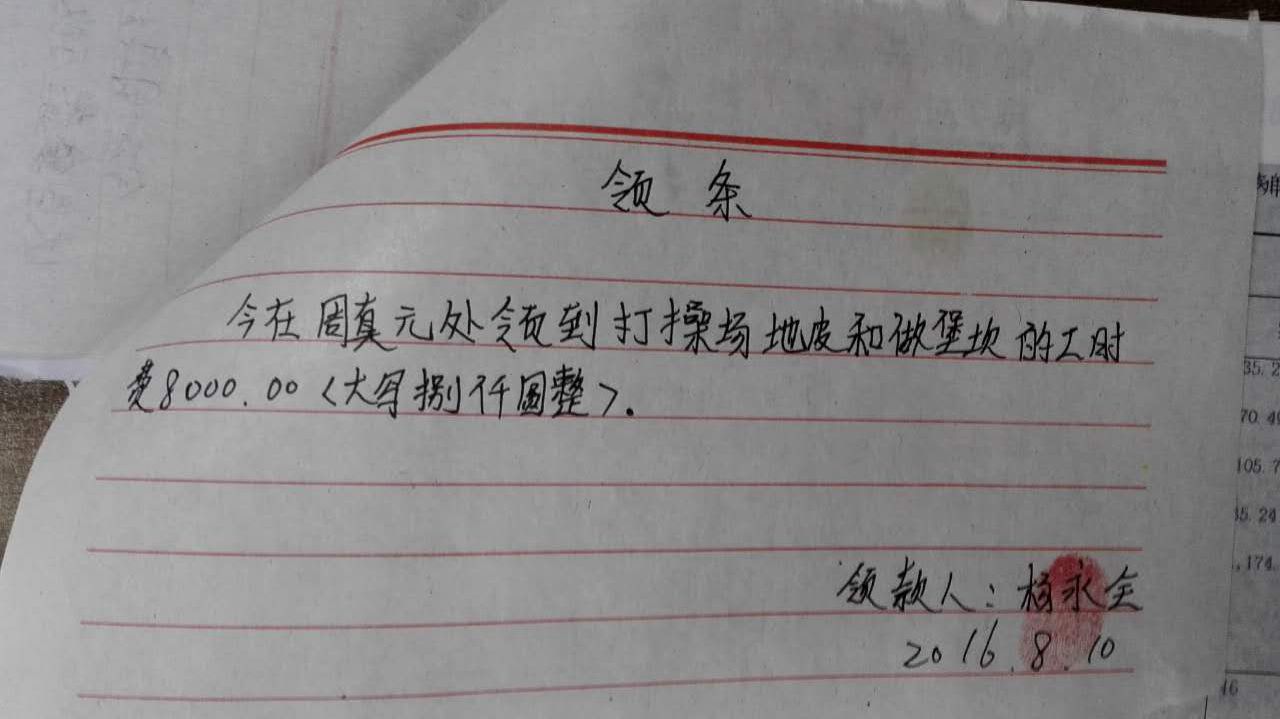 领条
今在周真元处领到打操场地皮和做堡坎的工时
费8000.00<大写捌仟圆整>.
领款人:杨永全
2016.8.10
35.2
70.4
105.7
35.24
,174.
16